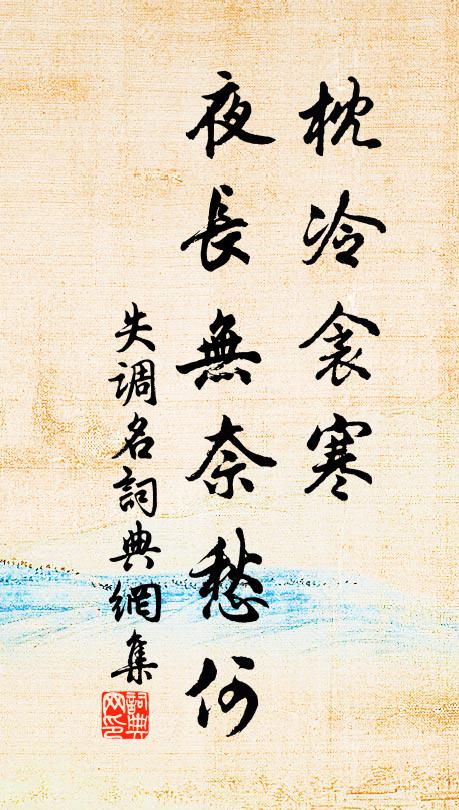 枕冷衾寒
夜長無奈愁何
失调名詞典網集
詞典
网印